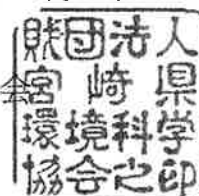 財団法人
宮崎県
環境科学
協会之印
会